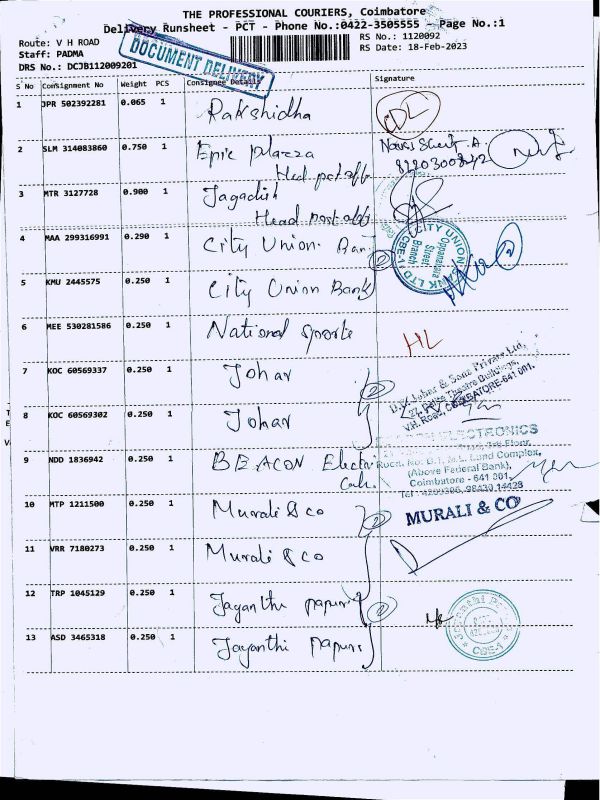 THE PROFESSIONAL COURIERS, Coimbatore
Delivery Runsheet - PCT - Phone No.:0422-3505555 - Page No.:1
Route: V H ROAD
RS No.: 1120092
Staff: PADMA
RS Date: 18-Feb-2023
DRS No.: DCJB112009201
DOCUMENT DELIVERY
S No Consignment No Weight PCS Consignee Details Signature
1 JPR 502392281 0.065 1 Rakshidha CDL
2 SLM 314083860 0.750 1 Epic plazza
8220300842
3 MTR 3127728 0.900 1 Jagadish
Head post off
4 MAA 299316991 0.290 1 City Union Ban 2
CITY UNION BANK LTD
Oppanakara
Street
Branch
CBE-1
5 KMU 2445575 0.250 1 City Union Bank
6 MEE 530281586 0.250 1 National sports HL
7 KOC 60569337 0.250 1 Johar 2
& Sons Private Ltd,
Theatre Buildings,
V.H. Road, COIMBATORE-641 001.
8 KOC 60569302 0.250 1 Johar
ELECTRONICS
9 NDD 1836942 0.250 1 BEACON Electr
Complex,
(Above Federal Bank),
Coimbatore - 641 001,
10 MTP 1211500 0.250 1 Murali & co 2 MURALI & CO
11 VRR 7180273 0.250 1 Murali & co
12 TRP 1045129 0.250 1 Jayanthi papers 2
13 ASD 3465318 0.250 1 Jayanthi papers